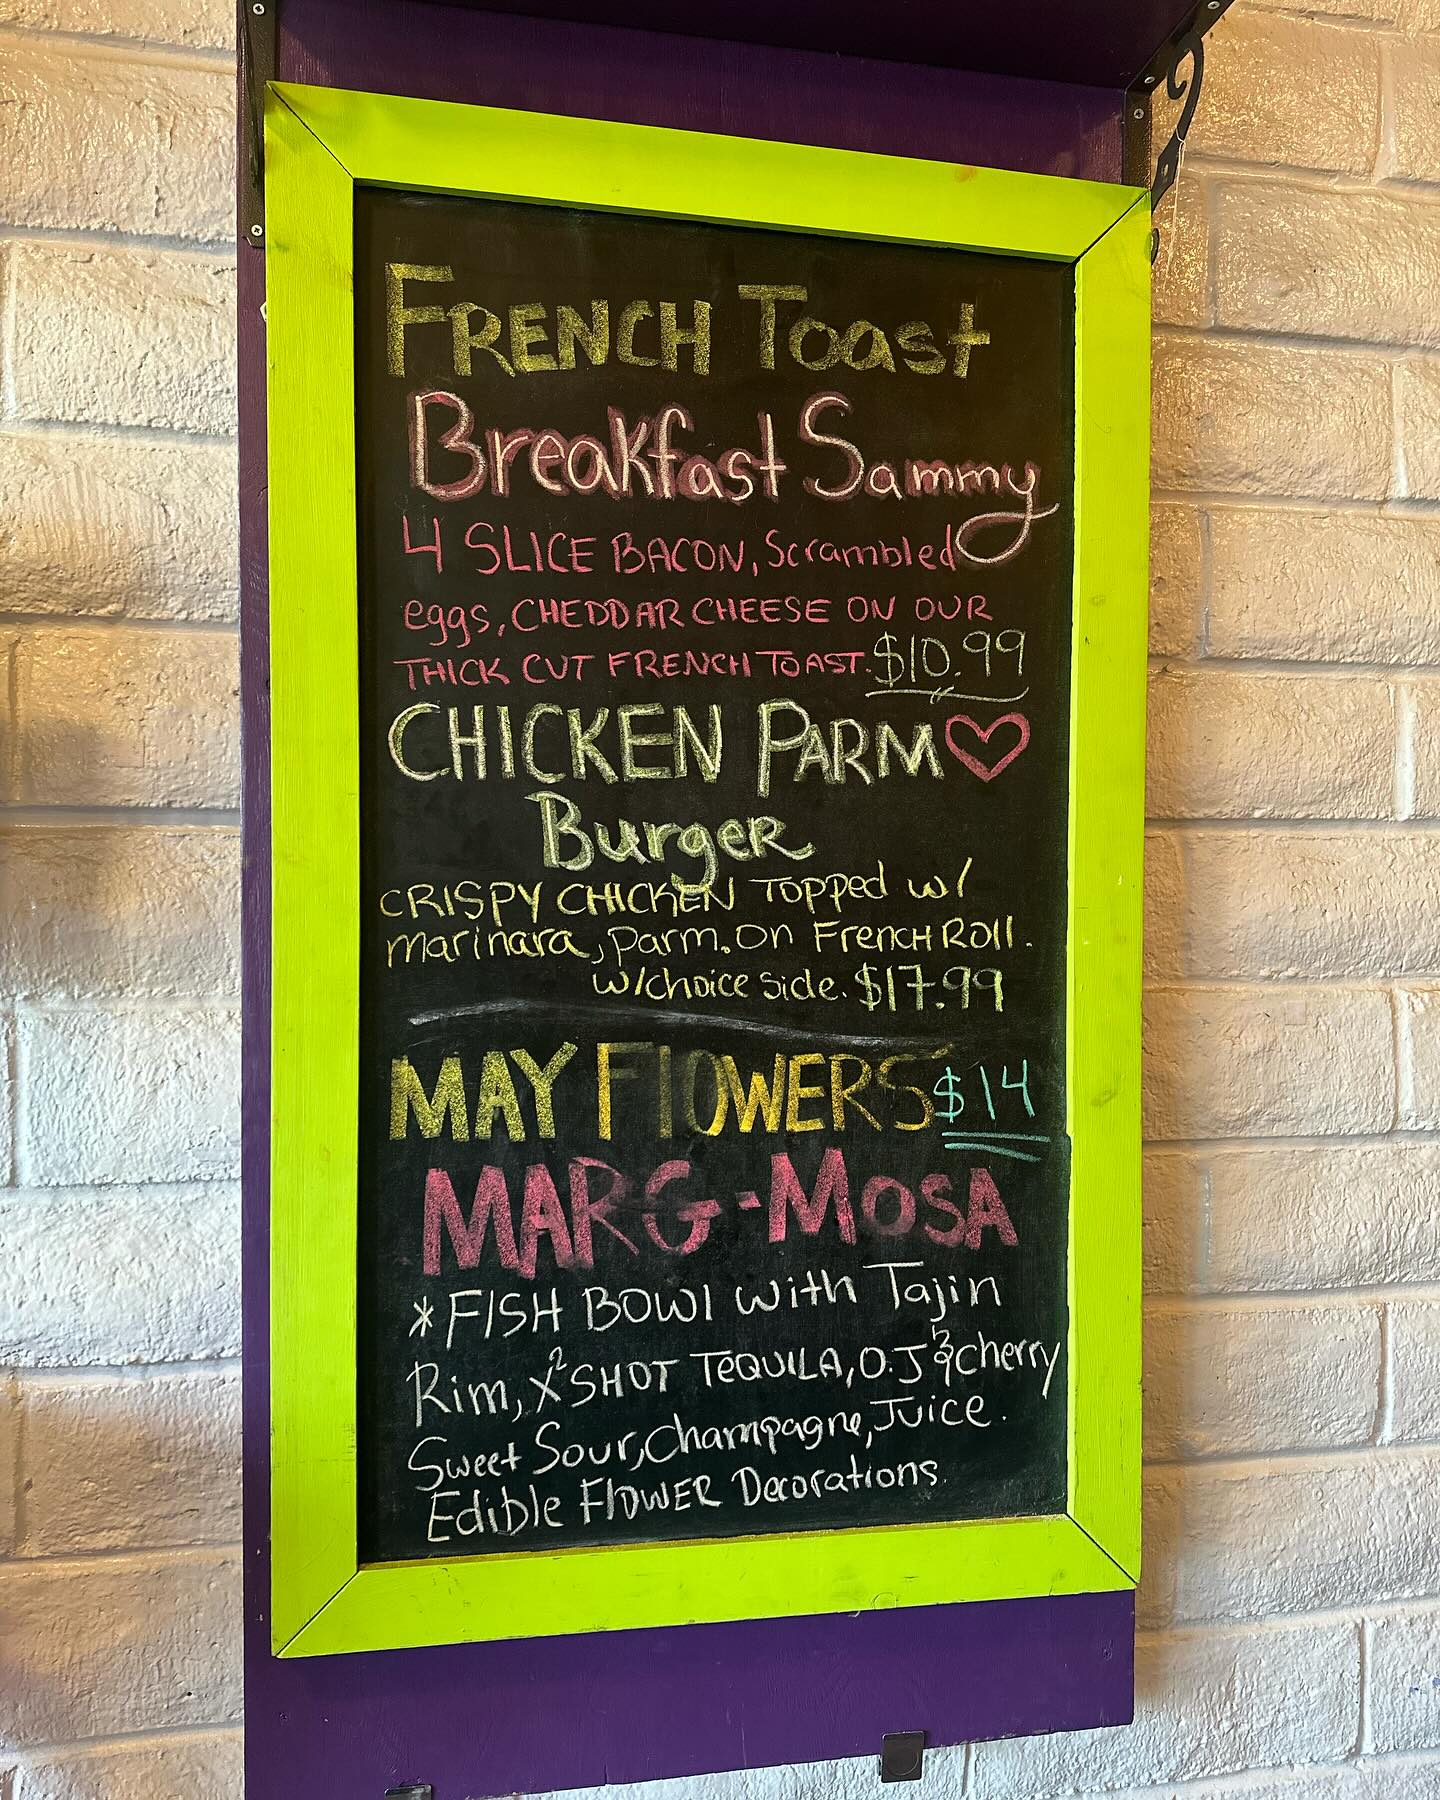 FRENCH Toast
Breakfast Sammy
4 SLICE BACON, Scrambled
eggs, CHEDDAR CHEESE ON OUR
THICK CUT FRENCH TOAST. $10.99
CHICKEN PARM
BurgeR
CRISPY CHICKEN Topped w/
marinara, parm. on French Roll.
w/choice side. $17.99
MAY FlOWERS $14
MARG-MOSA
*FISH BOWl with Tajin
Rim, x2 SHOT TEQUILA, O.J & cherry
Sweet Sour, Champagne, Juice.
Edible FlOWER Decorations.